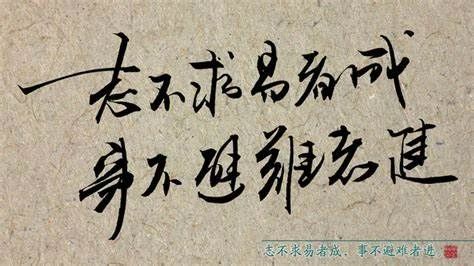 志不求易者成
事不避难者进
志不求易者成、事不避难者进